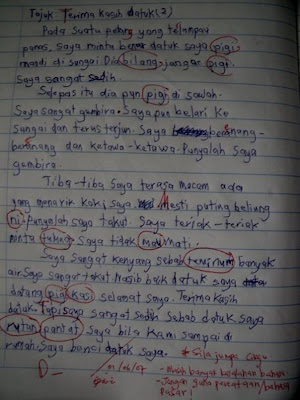 Tajuk Terima Kasih datuk (2)
Pada suatu petang yang telampau
panas, Saya minta datuk saya pigi
mandi di sungai Dia bilang, jangan pigi.
Saya sangat sedih
Selepas itu dia pun pigi di sawah.
Saya sangat gumbira. Saya pun belari ke
sungai dan terus terjun. Saya benang-
benang dan ketawa-ketawa. Punyalah saya
gumbira.
Tiba-tiba Saya terasa macam ada
yang menarik kaki saya. Mesti puting beliung
ni. Punyalah saya takut. Saya teriak-teriak
minta tulung. Saya tidak mau mati.
Saya sangat kenyang sebab teminum banyak
air. Saya sangat takut Nasib baik datuk saya
datang pigi kasi selamat saya. Terima kasih
datuk. Tapi saya sangat sedih sebab datuk saya
rutan pantat saya bila kami sampai di
rumah. Saya banci datuk saya.
* Sila jumpa cikgu
D- 01/06/07 - Masih banyak kesalahan bahasa
- Jangan guna percakapan/bahasa
pasar!